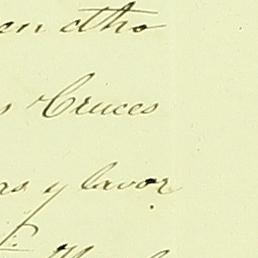 en otho
s Cruces
as y lavor